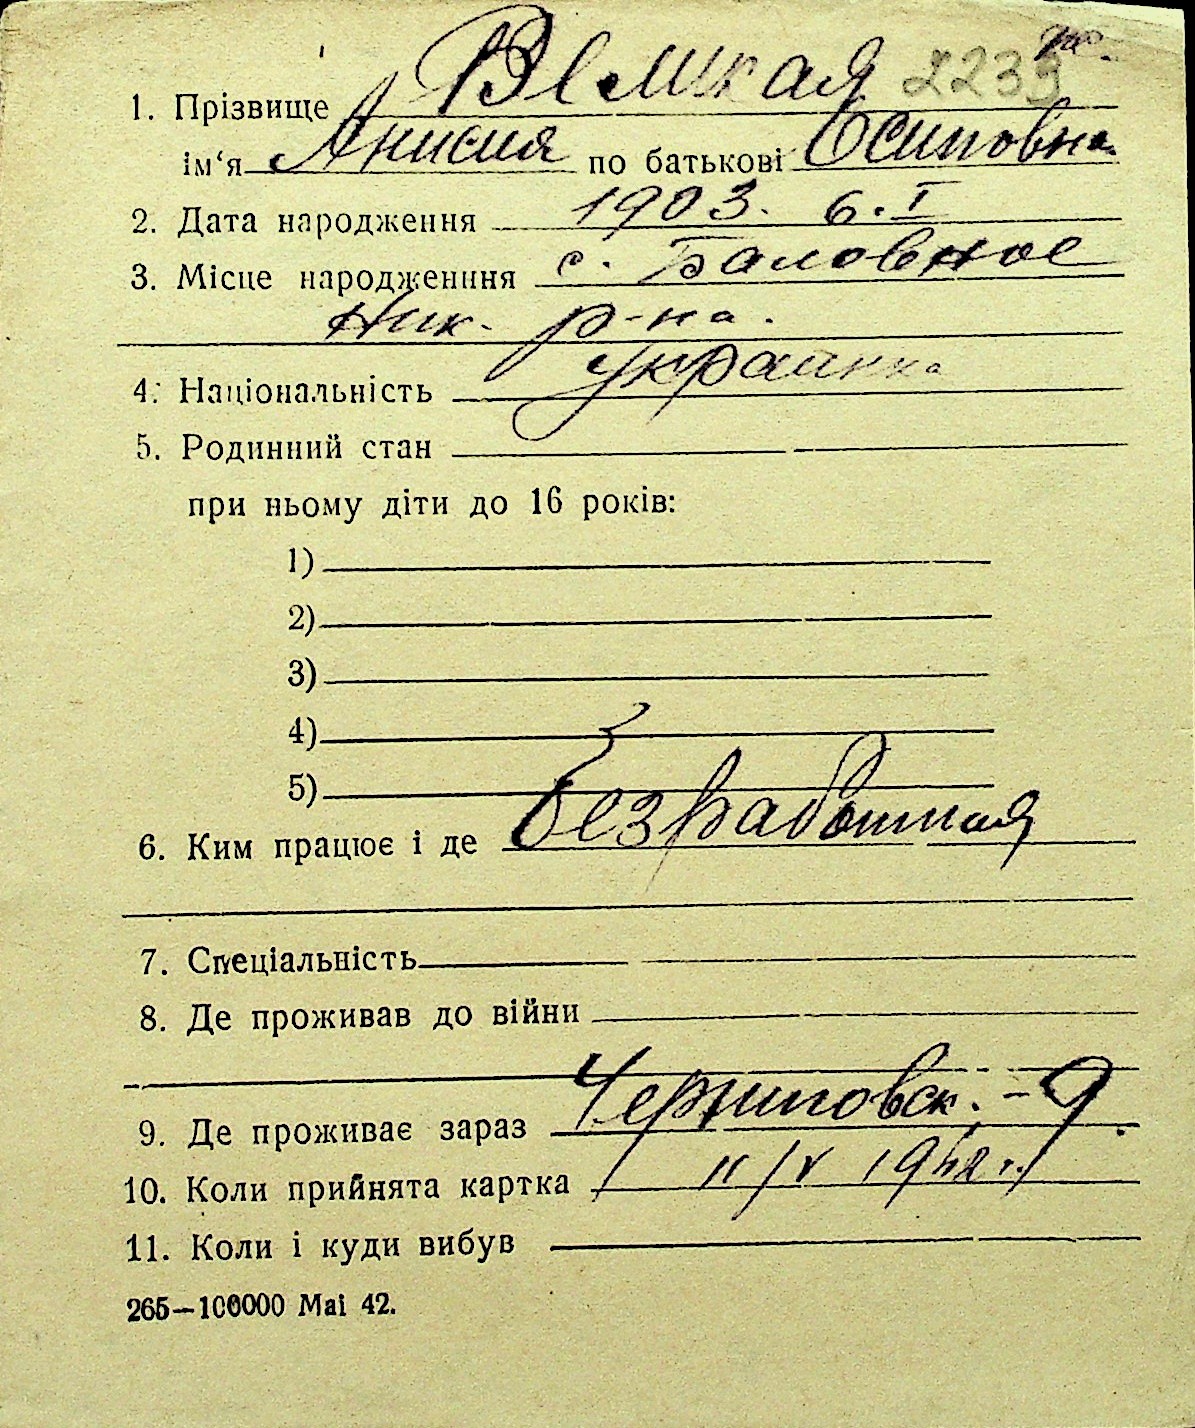 1. Прізвище Великая 2239
ім‘я Анисия по батькові Осиповна
2. Дата народження 1903. 6. I
3. Місце народженння с. Баловное
Ник. р-на.
4. Національність украинка
5. Родинний стан
при ньому діти до 16 років:
1)
2)
3)
4)
5)
6. Ким працює і де безработная
7. Спеціальність
8. Де проживав до війни
9. Де проживає зараз Черниговск. - 9.
10. Коли прийнята картка 11/V 1942 г.
11. Коли і куди вибув
265—100000 Mai 42.